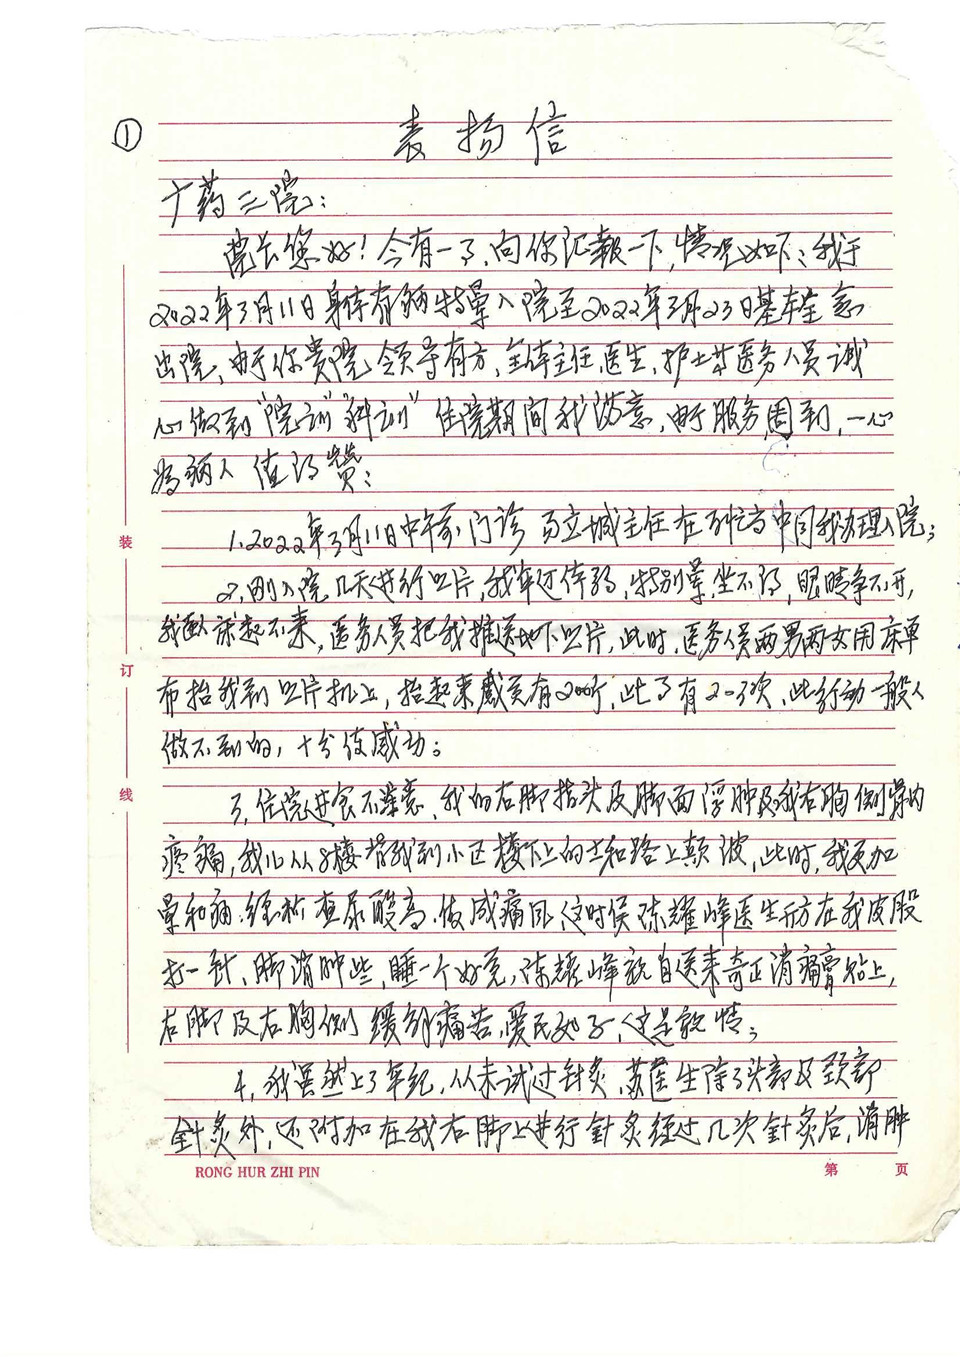 ①
表扬信
广药三院:
院长您好!今有一事,向你汇报一下,情况如下:我于
2022年3月11日身体有病特晕入院至2022年3月23日基本全愈
出院,由于你贵院领导有方,全体主任、医生、护士等医务人员诚
心做到"院训""科训"住院期间我满意,由于服务周到,一心
为病人值得赞:
1.2022年3月11日中午前门诊马立城主任在百忙当中同我办理入院;
2,刚入院几天进行照片,我年迈体弱,特别晕,坐不得,眼睛争不开,
我卧床起不来,医务人员把我推送地下照片,此时,医务人员两男两女用床单
布抬我到照片机上,抬起来我员有200斤,此事有2-3次,此行动一般人
做不到的,十分使感动;
3,住院进食不注意,我的右脚指头及脚面浮肿及我右胸侧骨的
疼痛,我儿从8楼背我到小区楼下上的士和路上颠波,此时,我更加
晕和痛,经检查尿酸高,做成痛风,这时侯陈耀峰医生行方在我皮股
打一针,脚消肿些,睡一个好觉,陈耀峰亲自送来奇正消痛膏贴上,
右脚及右胸侧缓解痛苦,爱民如子,这是真情;
4,我虽然上了年纪,从未试过针灸,苏医生除了头部及颈部
针灸外,还附加在我右脚上进行针灸经过几次针灸后,消肿
装
订
线
RONG HUR ZHI PIN
第 页